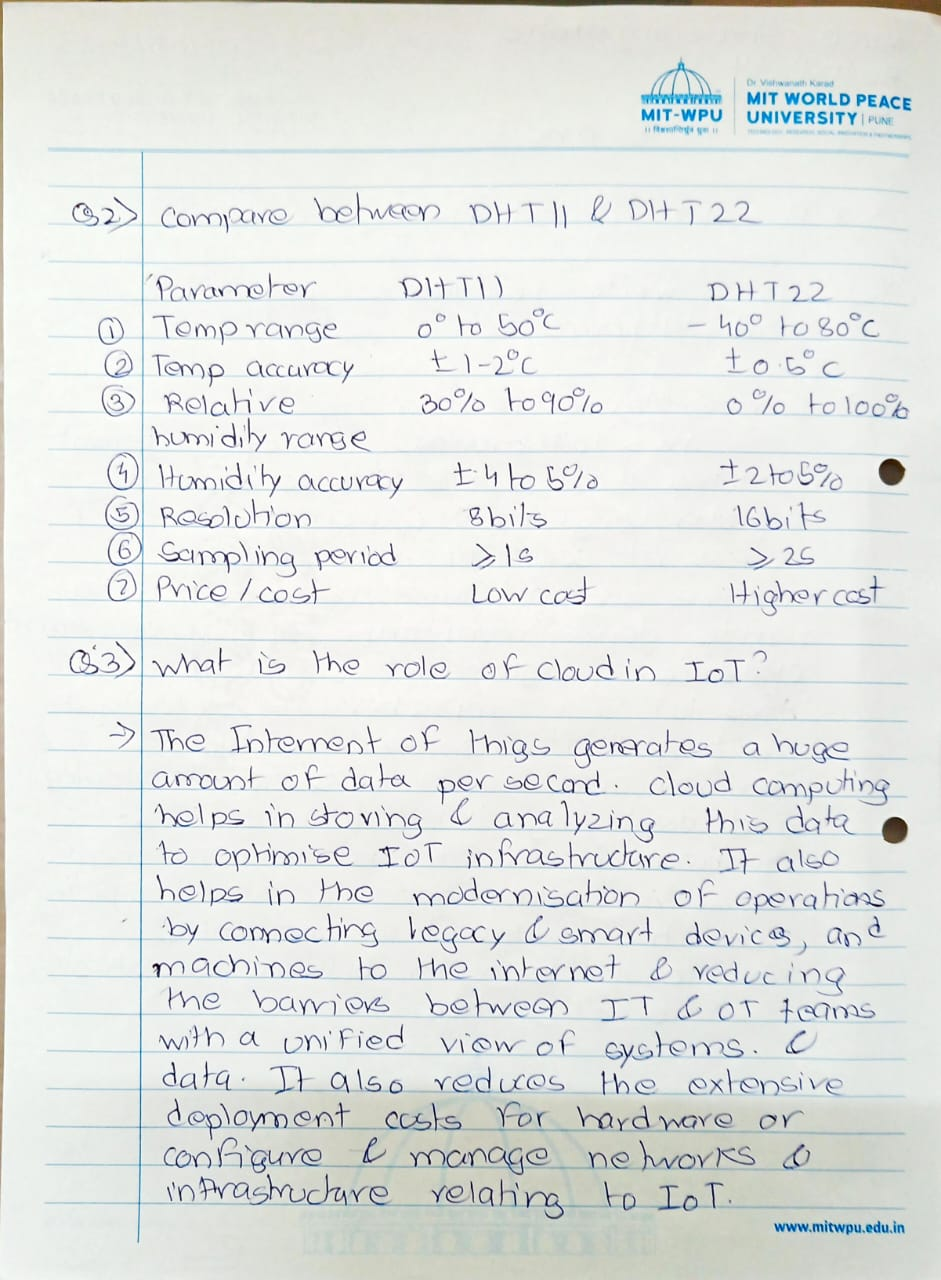 Dr. Vishwanath Karad
MIT WORLD PEACE
UNIVERSITY | PUNE
TECHNOLOGY, RESEARCH, SOCIAL INNOVATION & PARTNERSHIPS
MIT-WPU
॥ विश्वशान्तिर्ध्रुवं ध्रुवा ॥
Q2) Compare between DHT11 & DHT22
Parameter DHT11 DHT22
① Temp range 0° to 50°C - 40° to 80°C
② Temp accuracy ± 1-2°C ± 0.5°C
③ Relative 30% to 90% 0% to 100%
humidity range
④ Humidity accuracy ± 4 to 5% ± 2 to 5%
⑤ Resolution 8bits 16bits
⑥ Sampling period ⩾ 1s ⩾ 2s
⑦ Price / cost Low cost Higher cost
Q.3) what is the role of cloud in IoT?
→ The Internent of thigs generates a huge
amount of data per second. cloud computing
helps in storing & analyzing this data
to optimise IoT infrastructure. It also
helps in the modernisation of operations
by connecting legacy & smart devices, and
machines to the internet & reducing
the barriers between IT & OT teams
with a unified view of systems. &
data. It also reduces the extensive
deployment costs for hardware or
configure & manage networks &
infrastructure relating to IoT.
www.mitwpu.edu.in